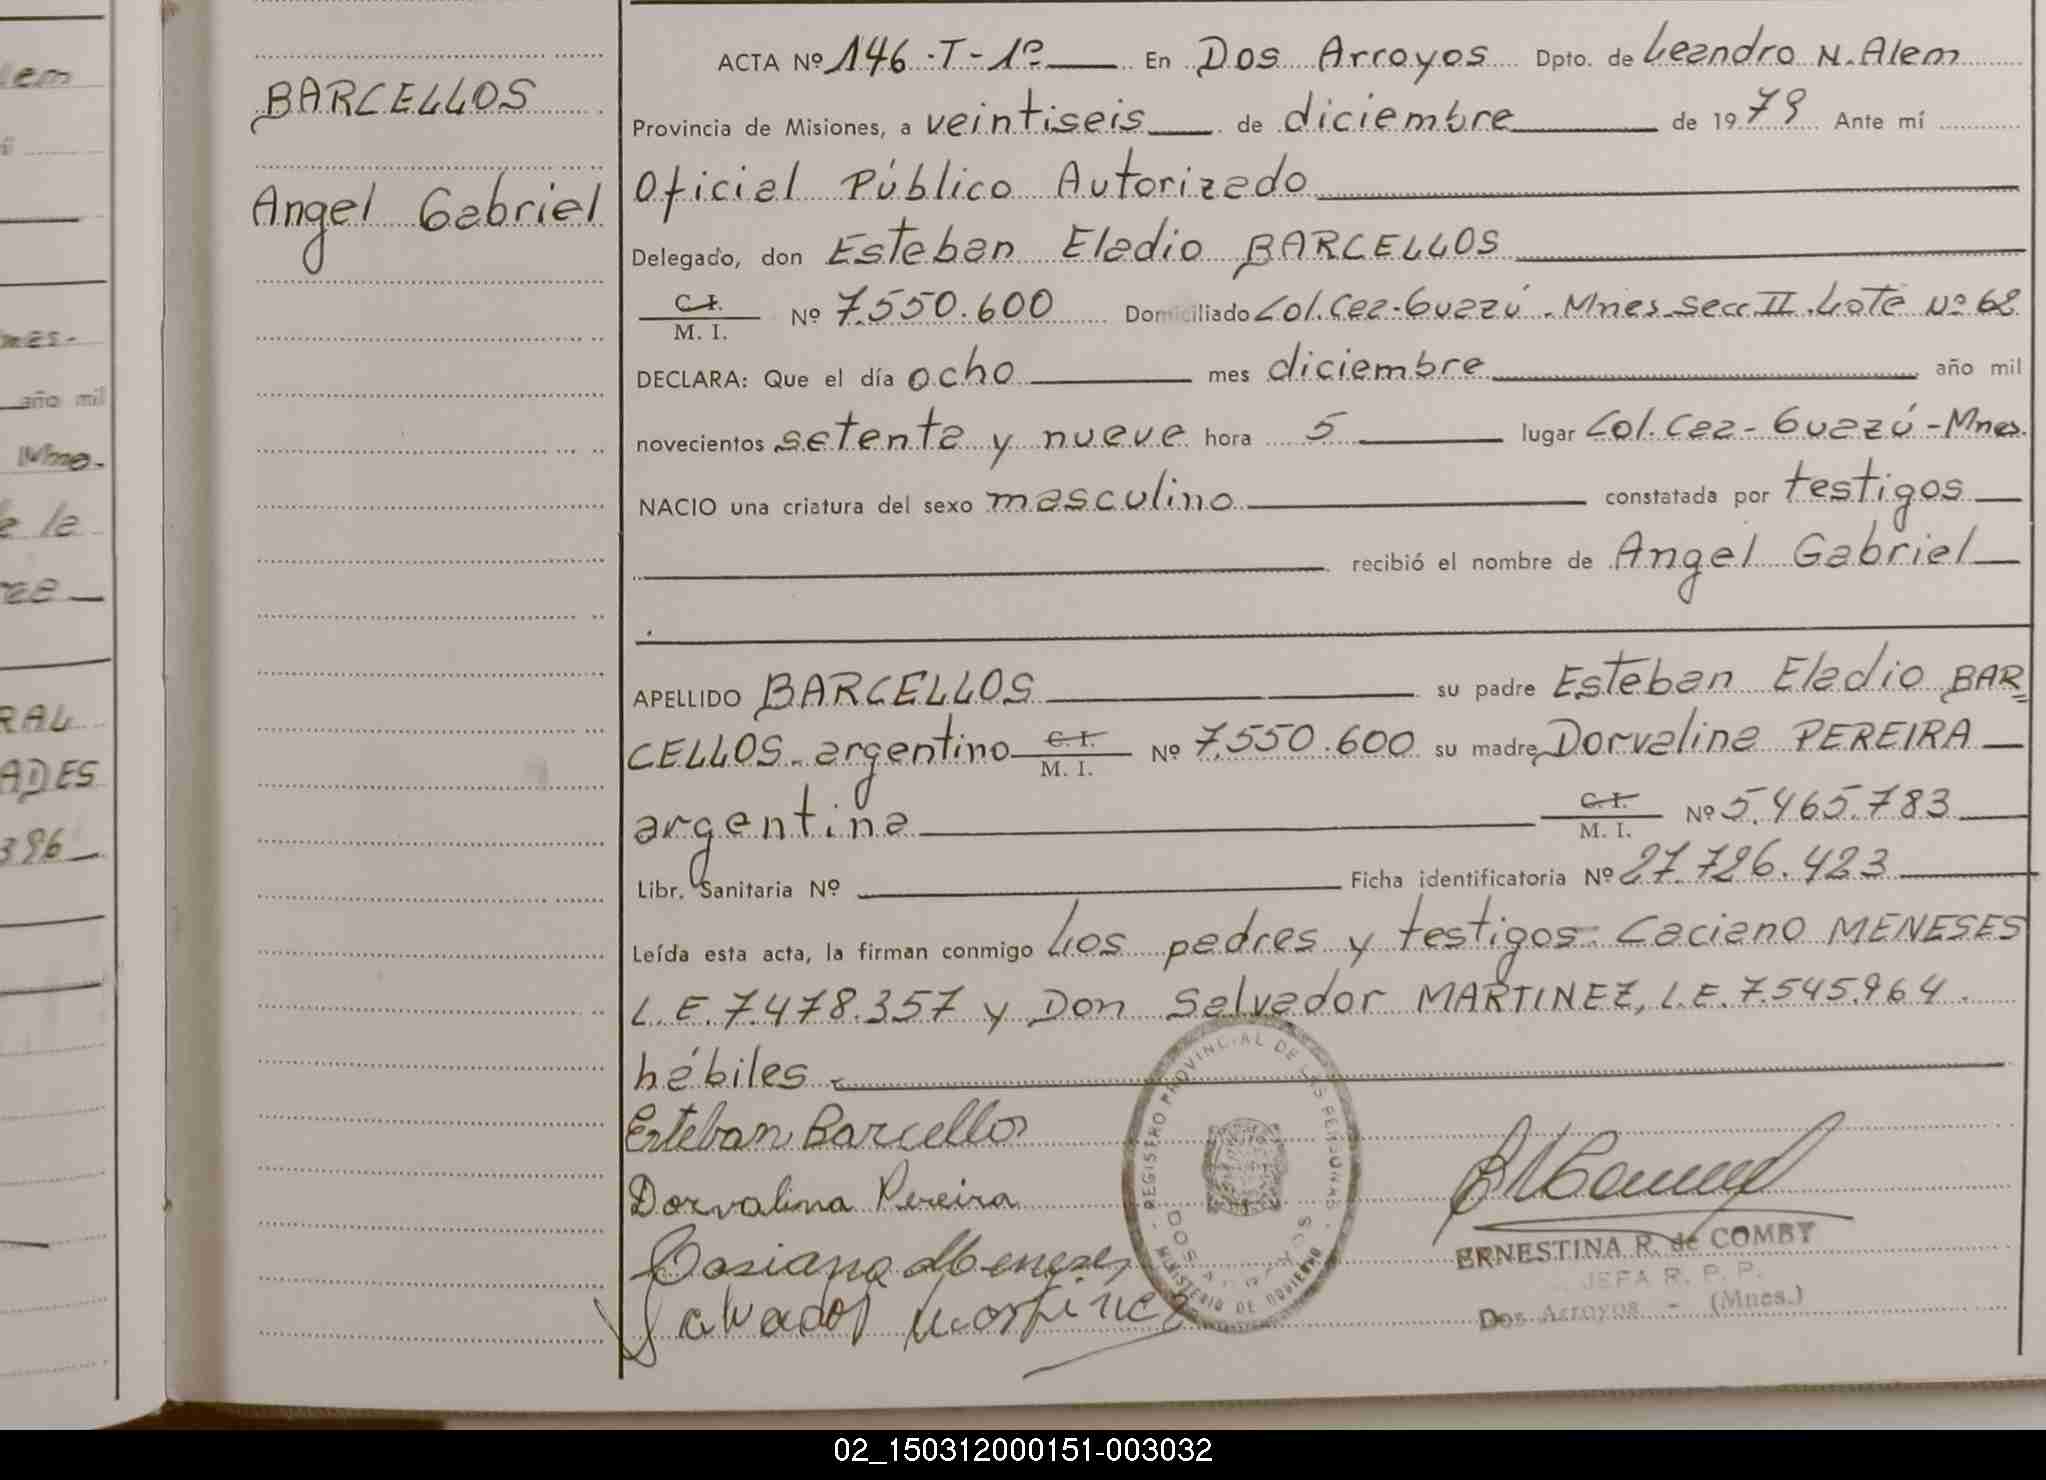 lem
BARCELLOS
Angel Gabriel
año mil
Mno.
e la
RAL
ADES
396
ACTA Nº 146 - T - 1º En Dos Arroyos Dpto. de Leandro N. Alem
Provincia de Misiones, a veintiseis de diciembre de 1979 Ante mí
Oficial Público Autorizado
Delegado, don Esteban Eladio BARCELLOS
C. I.
M. I. Nº 7.550.600 Domiciliado Col. Caa-Guazú. Mnes. Secc. II. Lote Nº 68
DECLARA: Que el día ocho mes diciembre año mil
novecientos setenta y nueve hora 5 lugar Col. Caa-Guazú - Mnes.
NACIO una criatura del sexo masculino constatada por testigos
recibió el nombre de Angel Gabriel
APELLIDO BARCELLOS su padre Esteban Eladio BAR
CELLOS. argentino C. I. M. I. Nº 7.550.600 su madre Dorvalina PEREIRA
argentina C. I. M. I. Nº 5.465.783
Libr. Sanitaria Nº Ficha identificatoria Nº 27.726.423
Leída esta acta, la firman conmigo Los padres y testigos: Caciano MENESES
L.E. 7.478.357 y Don Salvador MARTINEZ, L.E. 7.545.964.
hábiles
Esteban Barcellos
Dorvalina Pereira
Casiano Meneses
Salvador Martinez
REGISTRO PROVINCIAL DE LAS PERSONAS
DOS ARROYOS
MINISTERIO DE GOBIERNO
ERNESTINA R. de COMBY
JEFA R. P. P.
Dos Arroyos - (Mnes.)
02_150312000151-003032